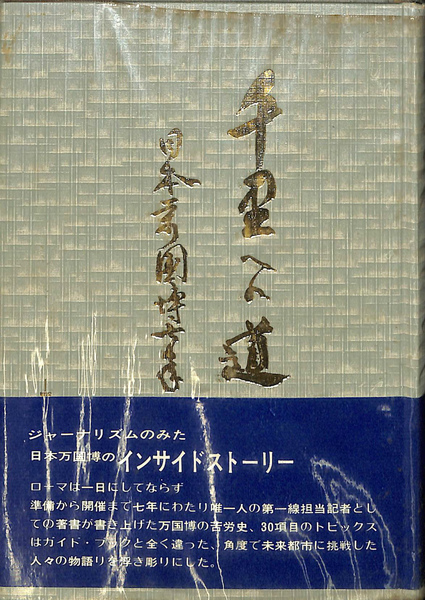 千里への道
日本万国博七年
ジャーナリズムのみた
日本万国博のインサイドストーリー
ローマは一日にしてならず
準備から開催まで七年にわたり唯一人の第一線担当記者とし
ての著書が書き上げた万国博の苦労史、30項目のトピックス
はガイド・ブックと全く違った、角度で未来都市に挑戦した
人々の物語りを浮き彫りにした。